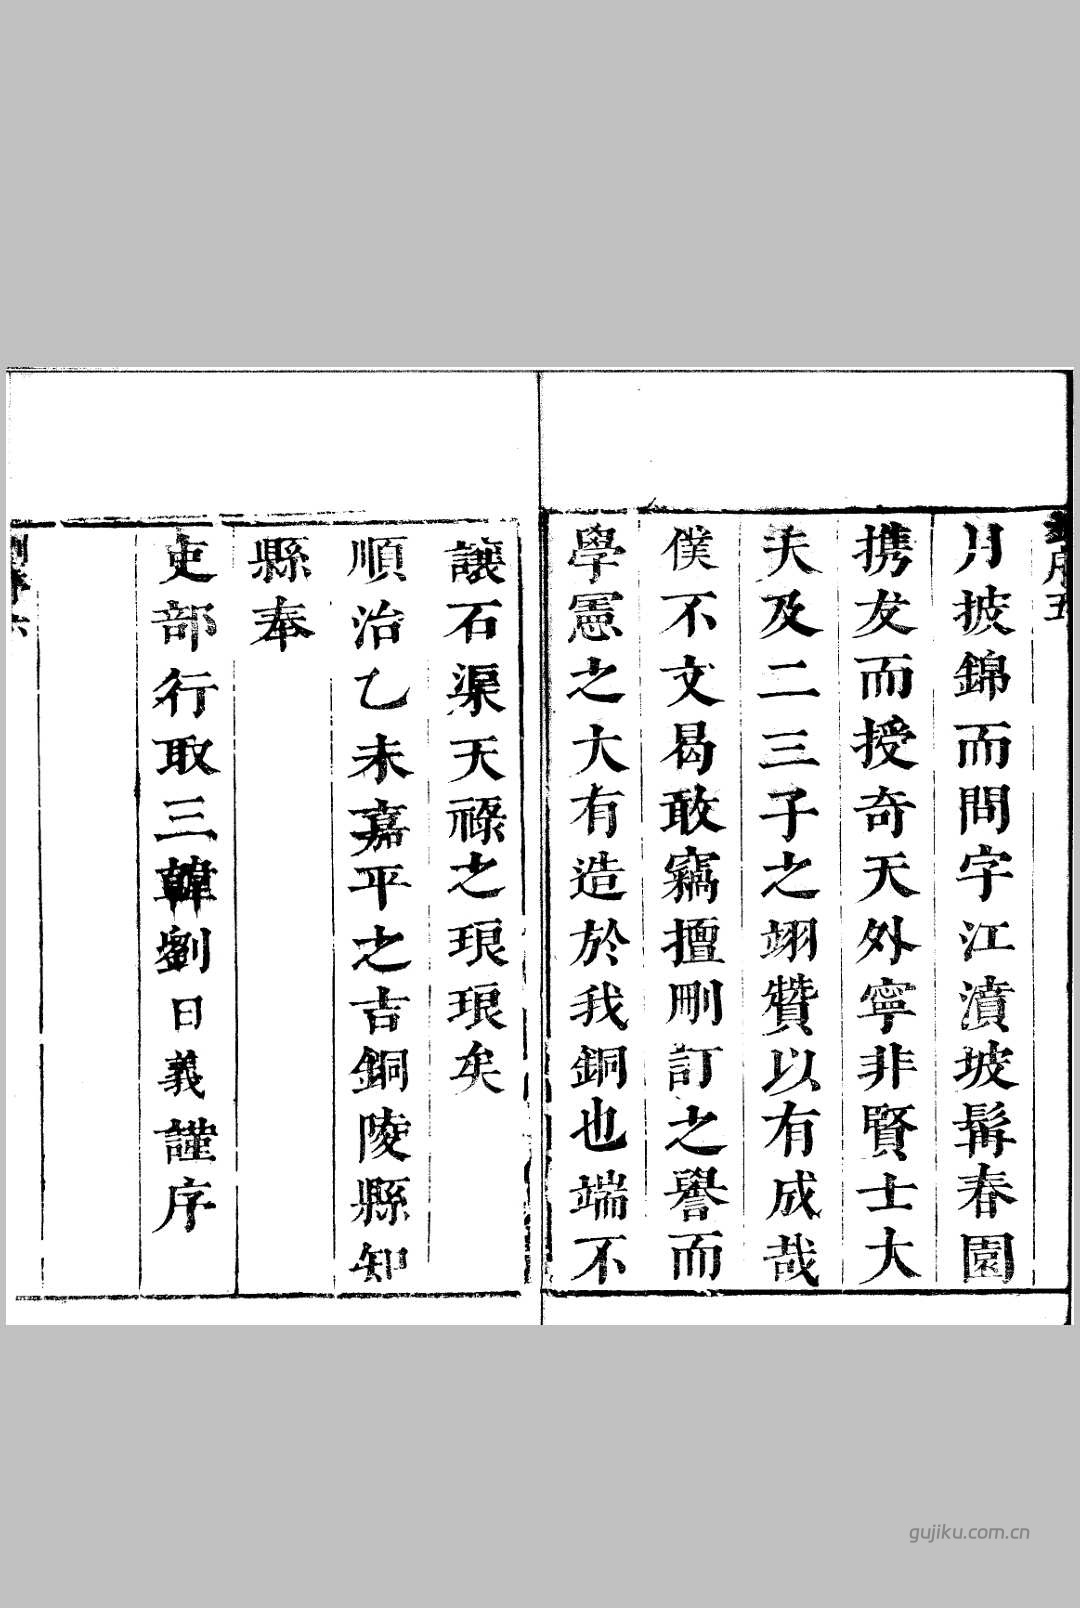 月披錦而問字江濆坡髯春園
携友而授奇天外寧非賢士大
夫及二三子之翊贊以有成哉
僕不文曷敢竊擅刪訂之譽而
學憲之大有造於我銅也端不
讓石渠天祿之琅琅矣
順治乙未嘉平之吉銅陵縣知
縣奉
吏部行取三韓劉日義謹序
gujiku.com.cn